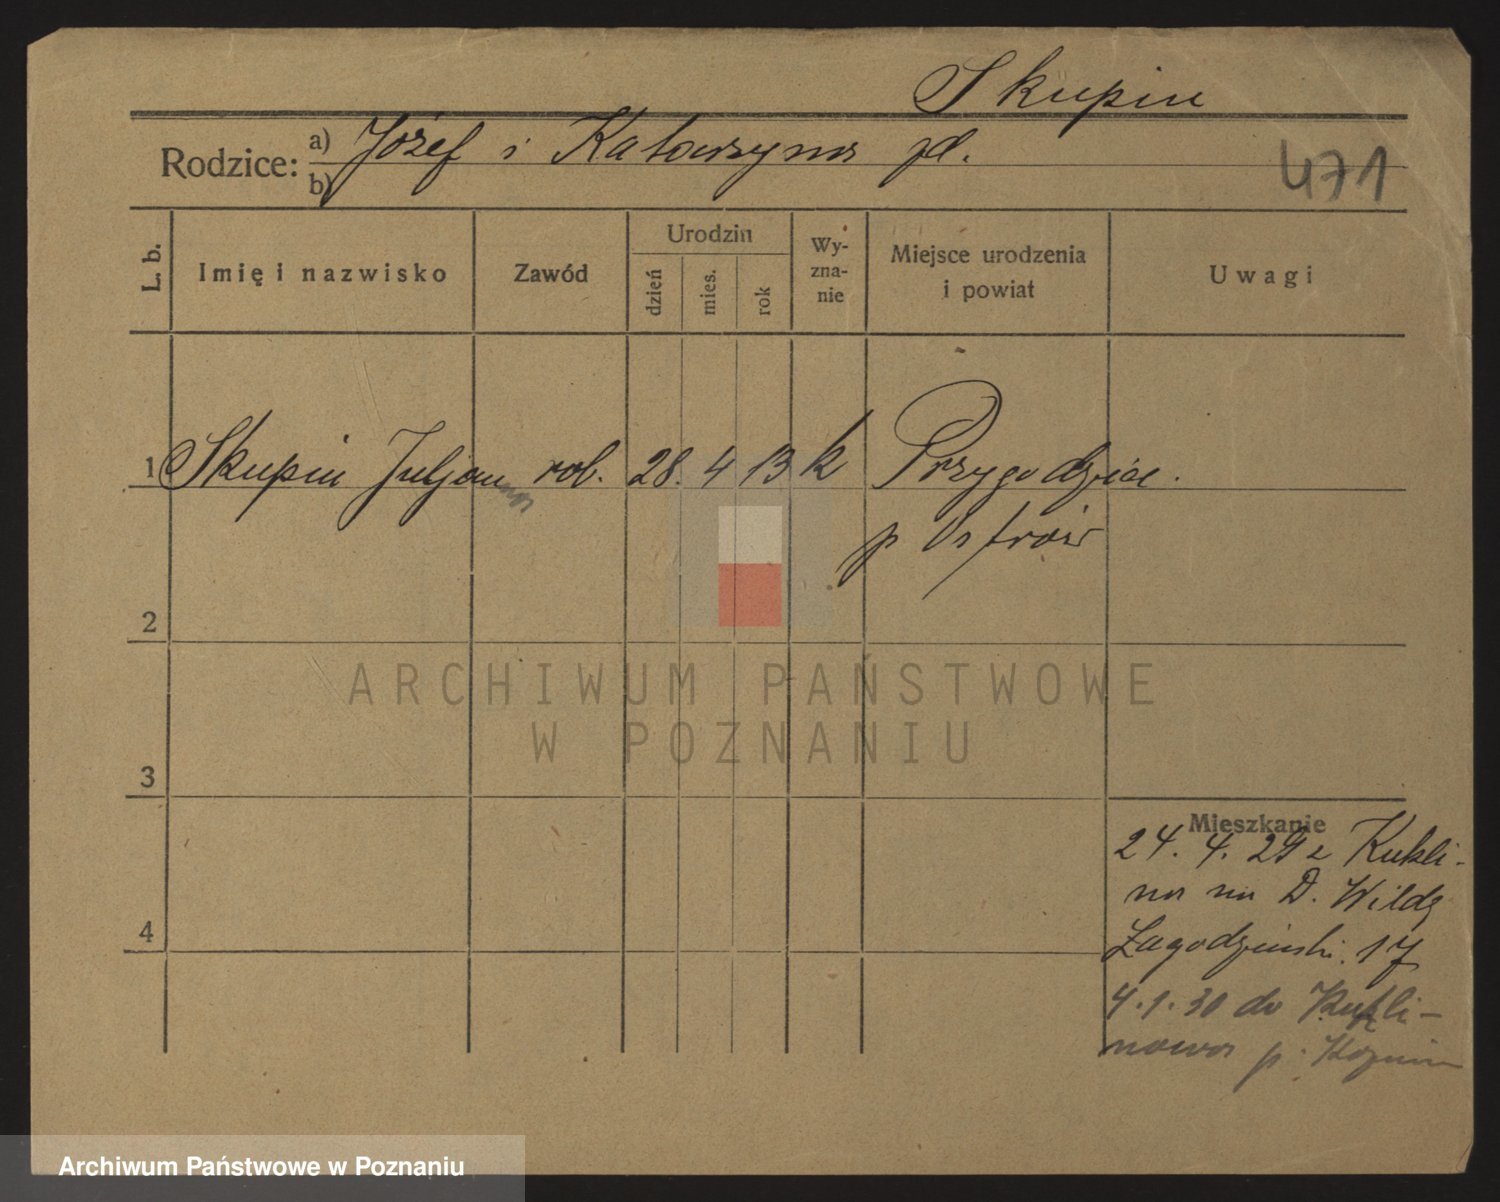 Skupin
Rodzice: a) Józef i Katarzyna zd.
b)
471
L. b. Imię i nazwisko Zawód Urodzin dzień mies. rok Wy-zna-nie Miejsce urodzenia i powiat Uwagi
1 Skupin Juljanna rob. 28. 4 13 k Przygodzice.
p Ostrów
2
ARCHIWUM PAŃSTWOWE
W POZNANIU
3
Mieszkanie
24. 4. 29 z Kukli-
na na D. Wildę
Łagodzińsk. 17
4
4.1.30 do Kukli-
nowa p. Koźmin
Archiwum Państwowe w Poznaniu